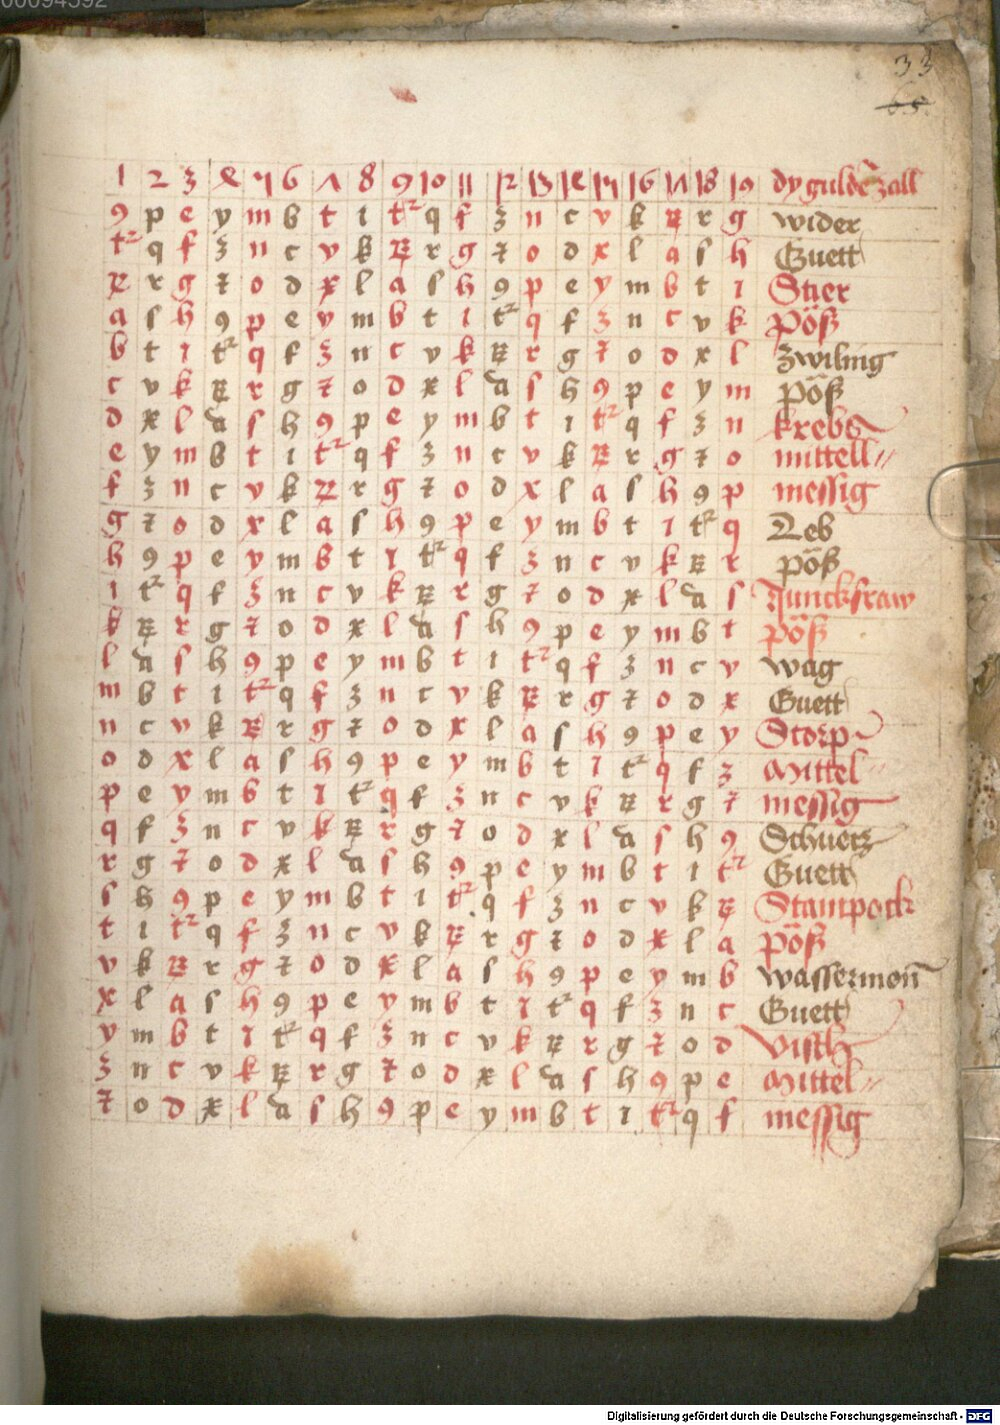 00094592
33
65
1 2 3 4 5 6 7 8 9 10 11 12 13 14 15 16 17 18 19 dy guldē zall
9 p e y m b t i t² q f z n c v k ꝝ r g wider
t² q f z n c v k ꝝ r g ⁊ o d x l a s h Guett
ꝝ r g ⁊ o d x l a s h 9 p e y m b t i Stier
a s h 9 p e y m b t i t² q f z n c v k pöß
b t i t² q f z n c v k ꝝ r g ⁊ o d x l zwiling
c v k ꝝ r g ⁊ o d x l a s h 9 p e y m pöß
d x l a s h 9 p e y m b t i t² q f z n krebs
e y m b t i t² q f z n c v k ꝝ r g ⁊ o mittell//
f z n c v k ꝝ r g ⁊ o d x l a s h 9 p messig
g ⁊ o d x l a s h 9 p e y m b t i t² q Leb
h 9 p e y m b t i t² q f z n c v k ꝝ r pöß
i t² q f z n c v k ꝝ r g ⁊ o d x l a s Junckfraw
k ꝝ r g ⁊ o d x l a s h 9 p e y m b t pöß
l a s h 9 p e y m b t i t² q f z n c v wag
m b t i t² q f z n c v k ꝝ r g ⁊ o d x Guett
n c v k ꝝ r g ⁊ o d x l a s h 9 p e y Storp
o d x l a s h 9 p e y m b t i t² q f z Mittel//
p e y m b t i t² q f z n c v k ꝝ r g ⁊ messig
q f z n c v k ꝝ r g ⁊ o d x l a s h 9 Schuetz
r g ⁊ o d x l a s h 9 p e y m b t i t² Guett
s h 9 p e y m b t i t² q f z n c v k ꝝ Stainpock
t i t² q f z n c v k ꝝ r g ⁊ o d x l a pöß
v k ꝝ r g ⁊ o d x l a s h 9 p e y m b wassermon̄
x l a s h 9 p e y m b t i t² q f z n c Guett
y m b t i t² q f z n c v k ꝝ r g ⁊ o d visch
z n c v k ꝝ r g ⁊ o d x l a s h 9 p e Mittel//
⁊ o d x l a s h 9 p e y m b t i t² q f messig
Digitalisierung gefördert durch die Deutsche Forschungsgemeinschaft - DFG